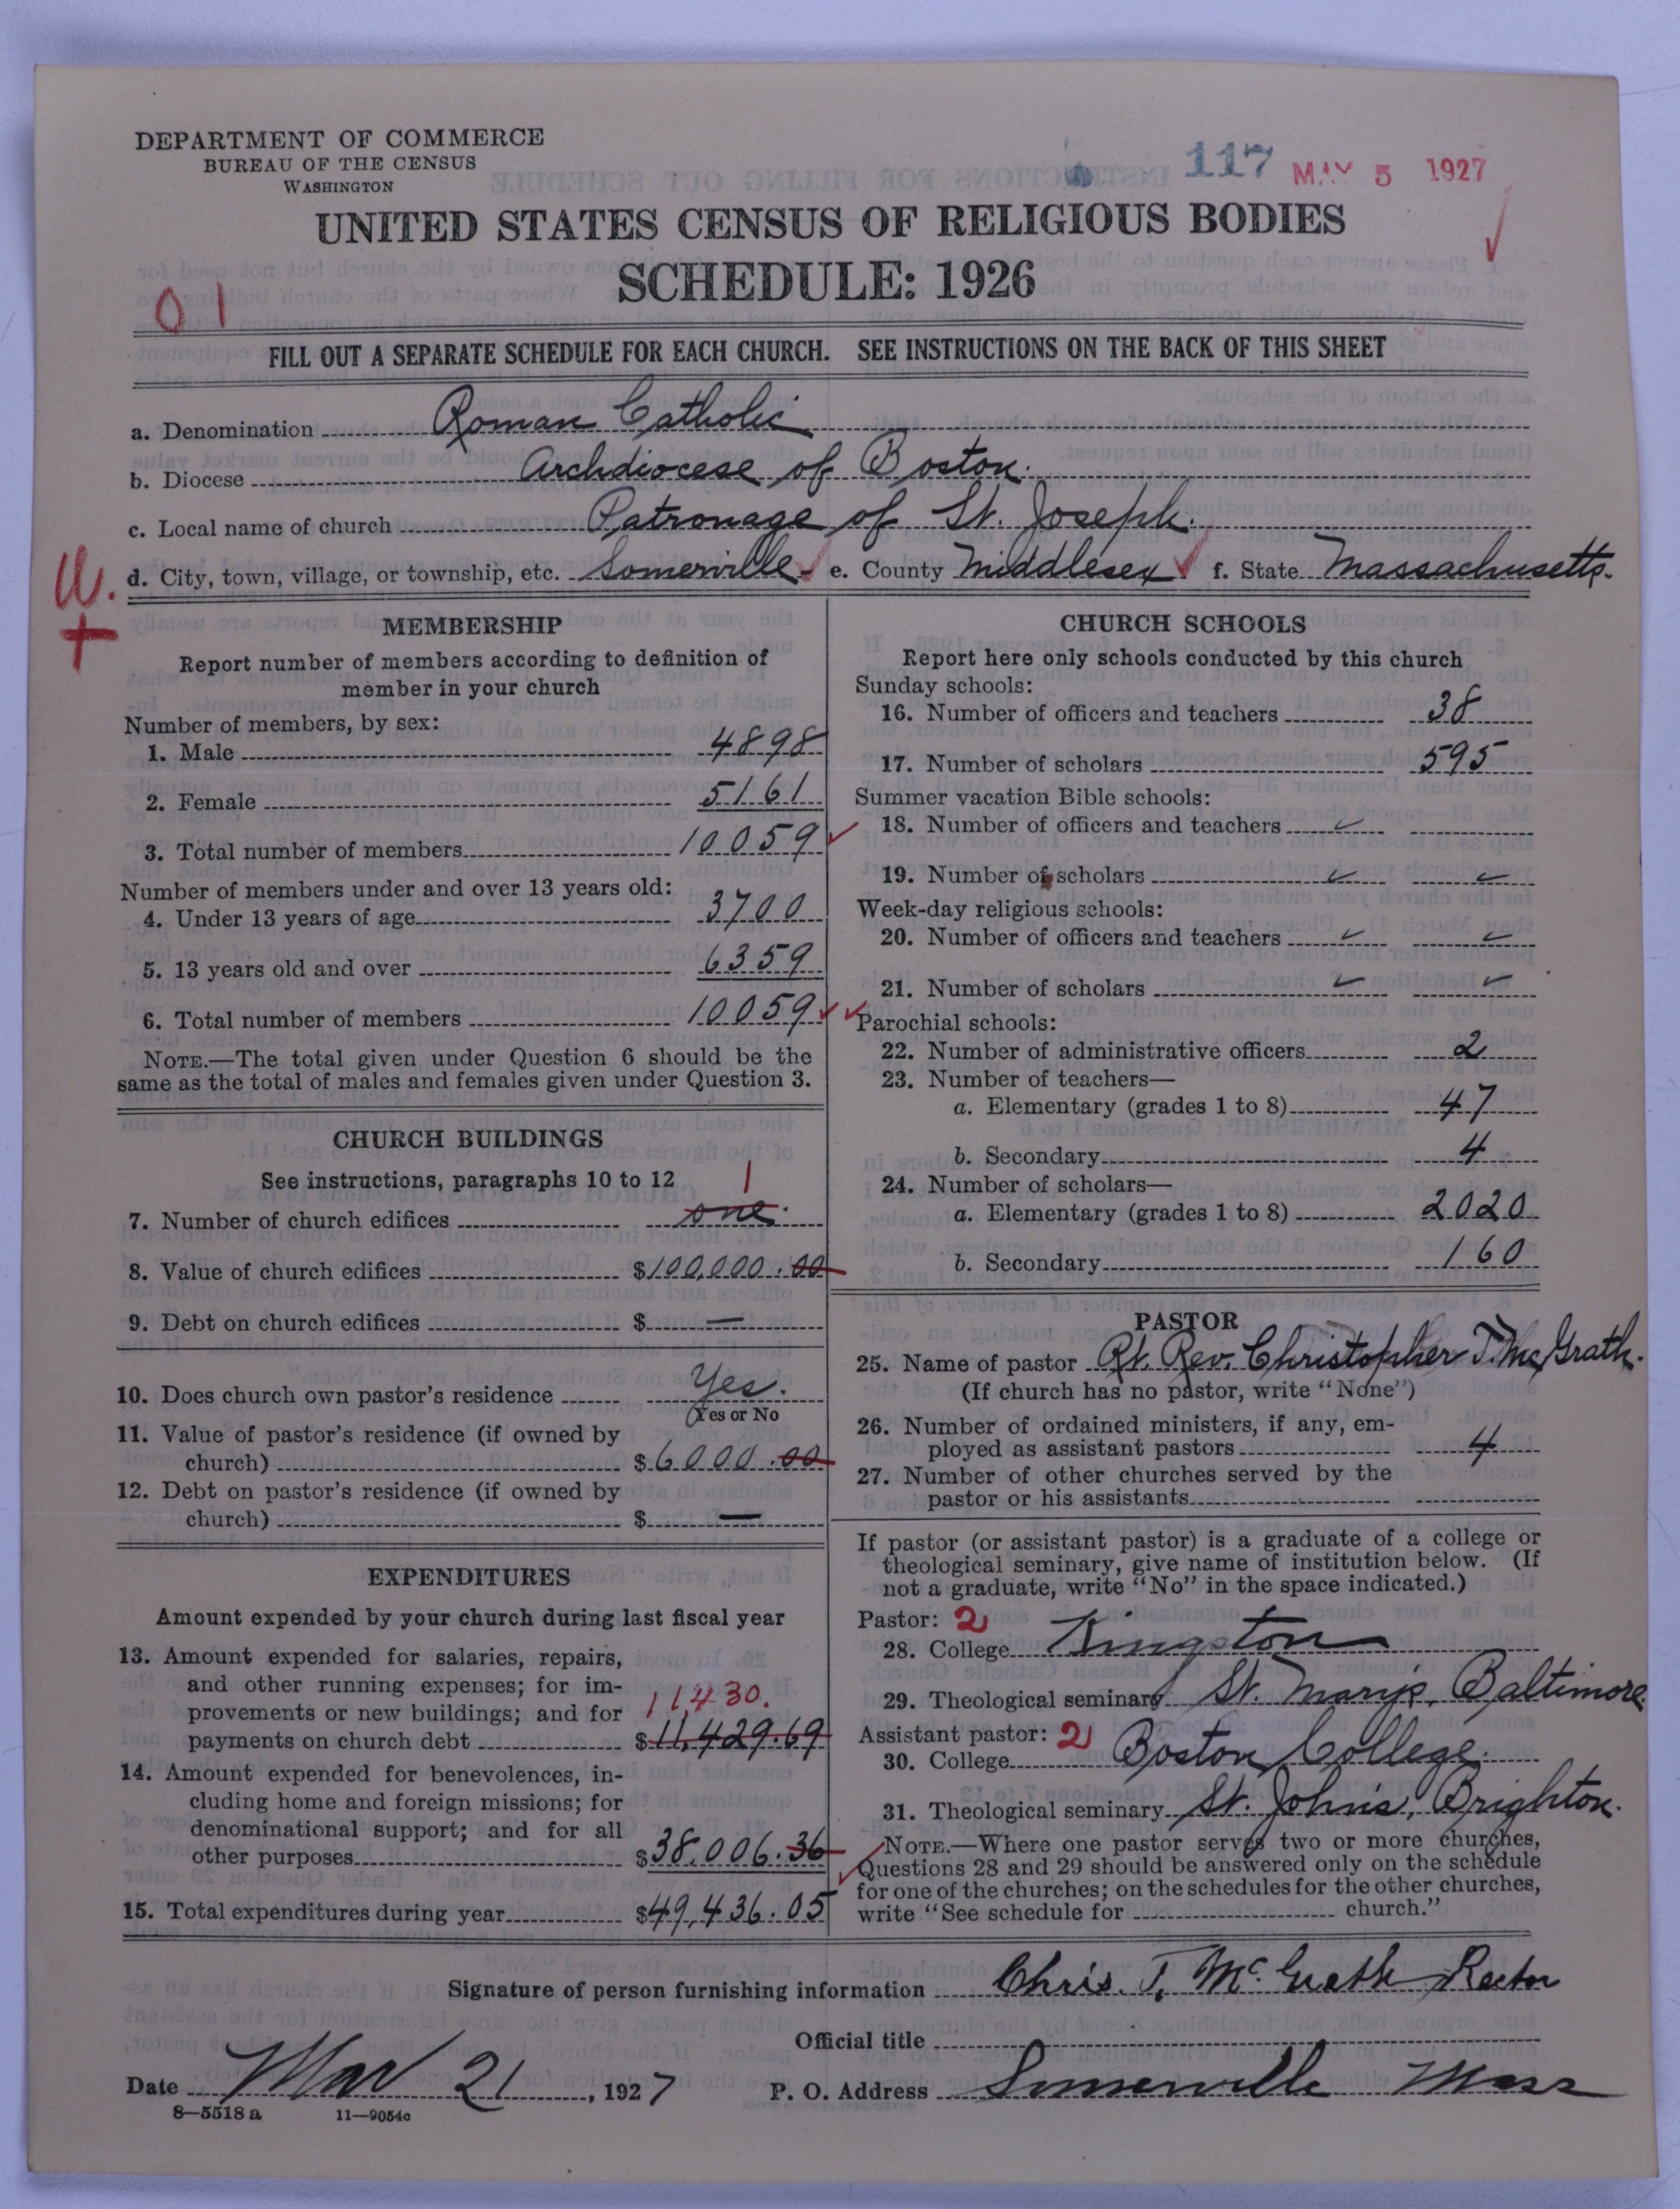 DEPARTMENT OF COMMERCE
BUREAU OF THE CENSUS
WASHINGTON
117 MAY 5 1927
UNITED STATES CENSUS OF RELIGIOUS BODIES
SCHEDULE: 1926
01
FILL OUT A SEPARATE SCHEDULE FOR EACH CHURCH. SEE INSTRUCTIONS ON THE BACK OF THIS SHEET
a. Denomination Roman Catholic
b. Diocese Archdiocese of Boston.
c. Local name of church Patronage of St. Joseph.
d. City, town, village, or township, etc. Somerville e. County Middlesex f. State Massachusetts.
W.
+
MEMBERSHIP
Report number of members according to definition of
member in your church
Number of members, by sex:
1. Male 4898
2. Female 5161
3. Total number of members 10059
Number of members under and over 13 years old:
4. Under 13 years of age 3700
5. 13 years old and over 6359
6. Total number of members 10059
NOTE.—The total given under Question 6 should be the
same as the total of males and females given under Question 3.
CHURCH BUILDINGS
See instructions, paragraphs 10 to 12 1
7. Number of church edifices one.
8. Value of church edifices $100,000.00
9. Debt on church edifices $ —
10. Does church own pastor's residence Yes.
(Yes or No
11. Value of pastor's residence (if owned by
church) $6000.00
12. Debt on pastor's residence (if owned by
church) $ —
EXPENDITURES
Amount expended by your church during last fiscal year
13. Amount expended for salaries, repairs,
and other running expenses; for im-
provements or new buildings; and for 11430.
payments on church debt $11,429.69
14. Amount expended for benevolences, in-
cluding home and foreign missions; for
denominational support; and for all
other purposes $38,006.36
15. Total expenditures during year $49,436.05
CHURCH SCHOOLS
Report here only schools conducted by this church
Sunday schools:
16. Number of officers and teachers 38
17. Number of scholars 595
Summer vacation Bible schools:
18. Number of officers and teachers
19. Number of scholars
Week-day religious schools:
20. Number of officers and teachers
21. Number of scholars
Parochial schools:
22. Number of administrative officers 2
23. Number of teachers—
a. Elementary (grades 1 to 8) 47
b. Secondary 4
24. Number of scholars—
a. Elementary (grades 1 to 8) 2020
b. Secondary 160
PASTOR
25. Name of pastor Rt. Rev. Christopher T. McGrath.
(If church has no pastor, write "None")
26. Number of ordained ministers, if any, em-
ployed as assistant pastors 4
27. Number of other churches served by the
pastor or his assistants
If pastor (or assistant pastor) is a graduate of a college or
theological seminary, give name of institution below. (If
not a graduate, write "No" in the space indicated.)
Pastor: 2
28. College Kingston
29. Theological seminary St. Mary's, Baltimore
Assistant pastor: 2
30. College Boston College.
31. Theological seminary St. John's, Brighton.
NOTE.—Where one pastor serves two or more churches,
Questions 28 and 29 should be answered only on the schedule
for one of the churches; on the schedules for the other churches,
write "See schedule for church."
Signature of person furnishing information Chris. T. McGrath Rector
Official title
Date Mar 21, 1927 P. O. Address Somerville Mass
8—5518 a 11—9054c